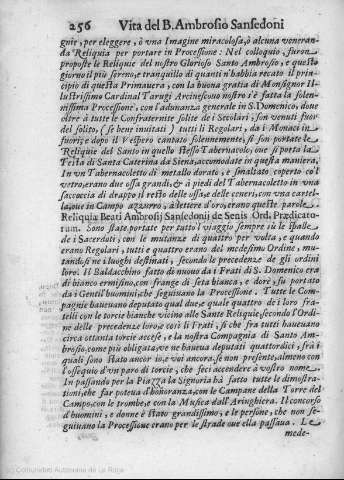 256 Vita del B. Ambrosio Sansedoni
gnie, per eleggere, ò vna Imagine miracolosa, ò alcuna veneran-
da Reliquia per portare in Processione: Nel colloquio, furon
proposte le Reliquie del nostro Glorioso Santo Ambrosio, e questo
giorno il più sereno, e tranquillo di quanti n'habbia recato il prin-
cipio di questa Primauera, con la buona gratia di Monsignor Il-
lustrissimo Cardinal Tarugi Arciuescouo nostro s'è fatta la solen-
nissima Processione, con l'adunanza generale in S. Domenico, doue
oltre à tutte le Confraternite solite de i Secolari, son venuti fuor
del solito, (se ben inuitati) tutti li Regolari, da i Monaci in
fuori; e dopò il Vespro cantato solennemente, si son portate le
Reliquie del Santo in quello stesso Tabernacolo, che si porta la
Testa di Santa Caterina da Siena, accomodate in questa maniera.
In vn Tabernacoletto di metallo dorato, e smaltato coperto col
vetro, erano due ossa grandi, & à piedi del Tabernacoletto in vna
saccoccia di drappo il resto delle ossa, e delle ceneri, con vna cartel-
la, oue in Campo azzurro, à lettere d'oro, erano queste parole
Reliquia Beati Ambrosij Sansedonij de Senis Ord. Prædicato-
rum. Sono state portate per tutto 'l viaggio sempre sù le spalle
de i Sacerdoti, con le mutanze di quattro per volta, e quando
erano Regolari, tutti e quattro erano del medesimo Ordine, mu-
tandosi ne i luoghi destinati, secondo le precedenze de gli ordini
loro. Il Baldacchino fatto di nuouo da i Frati di S. Domenico era
di bianco ermisino, con frange di seta bianca, e dorè, fù portato
da i Gentil'huomini, che seguiuano la Processione. Tutte le Com-
pagnie haueuano deputato qual due, e quale quattro de i loro fra-
telli con le torcie bianche vicino alle Sante Reliquie, secondo l'Ordi-
ne delle precedenze loro, e così li Frati, sì che frà tutti haueuano
circa ottanta torcie accese, e la nostra Compagnia di Santo Am-
brosio, come più obligata, ve ne haueua deputati quattordici, frà i
quali sono stato ancor io, e voi ancora, se non presente, almeno con
l'ossequio d'vn paro di torcie, che feci accendere à vostro nome.
In passando per la Piazza la Signoria hà fatto tutte le dimostra-
tioni, che far poteua d'honoranza, con le Campane della Torre del
Campo, con le trombe, e con la Musica dall'Aringhiera. Il concorso
d'huomini, e donne è stato grandissimo, e le persone, che non se-
guiuano la Processione erano per le strade oue ella passaua. Le
mede-
© Comunidad Autónoma de La Rioja